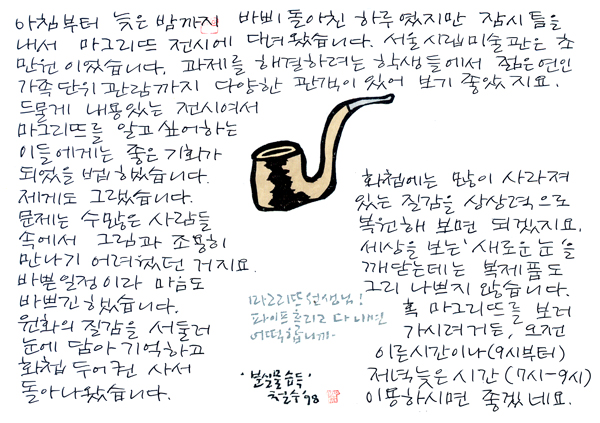 아침부터 늦은 밤까지 바삐 돌아친 하루였지만 잠시 틈을
내서 마그리뜨 전시에 다녀왔습니다. 서울시립미술관은 초
만원이었습니다. 과제를 해결하려는 학생들에서 젊은 연인
가족단위 관람까지 다양한 관객이 있어 보기 좋았지요.
드물게 내용있는 전시여서
마그리뜨를 알고 싶어하는
이들에게는 좋은 기회가
되었을 법 했습니다.
제게도 그랬습니다.
문제는 수많은 사람들
속에서 그림과 조용히
만나기 어려웠던 거지요.
바쁜일정이라 마음도
바쁘긴 했습니다.
원화의 질감을 서둘러
눈에 담아 기억하고
화첩 두어권 사서
돌아나왔습니다.
화첩에는 많이 사라져
있는 질감을 상상력으로
복원해 보면 되겠지요.
세상을 보는 '새로운 눈'을
깨닫는데는 복제품도
그리 나쁘지 않습니다.
혹 마그리뜨를 보러
가시려거든, 오전
이른시간이나 (9시부터)
저녁 늦은 시간 (7시-9시)
이용하시면 좋겠네요.
마그리뜨 선생님!
파이프 흘리고 다니시면
어떡합니까.
'분실물 습득'
철수 '98